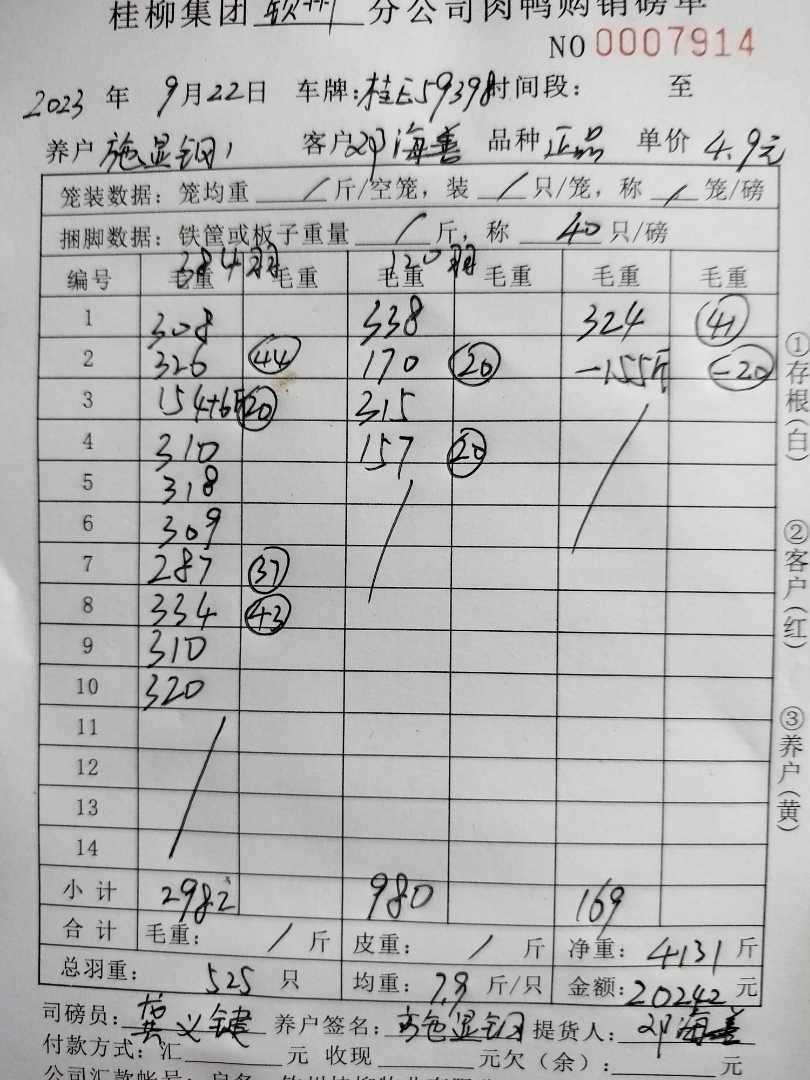 桂柳集团 钦州 分公司肉鸭购销磅单
NO 0007914
2023 年 9月22日 车牌:桂E59398时间段: 至
养户 施显钢 客户 邓海善 品种 正品 单价 4.9元
笼装数据: 笼均重 / 斤/空笼, 装 / 只/笼, 称 / 笼/磅
捆脚数据: 铁筐或板子重量 / 斤, 称 40 只/磅
384羽 120羽
编号 毛重 毛重 毛重 毛重 毛重 毛重
1 308 338 324 41
2 326 44 170 20 -155斤 -20
3 154+6斤 20 315
4 310 157 20
5 318
6 309
7 287 37
8 334 43
9 310
10 320
11
12
13
14
小计 2982 980 169
合计 毛重: / 斤 皮重: / 斤 净重: 4131 斤
总羽重: 525 只 均重: 7.9 斤/只 金额: 20242 元
司磅员: 龚义键 养户签名: 施显钢 提货人: 邓海善
付款方式: 汇 元 收现 元欠(余): 元
①存根(白)
②客户(红)
③养户(黄)